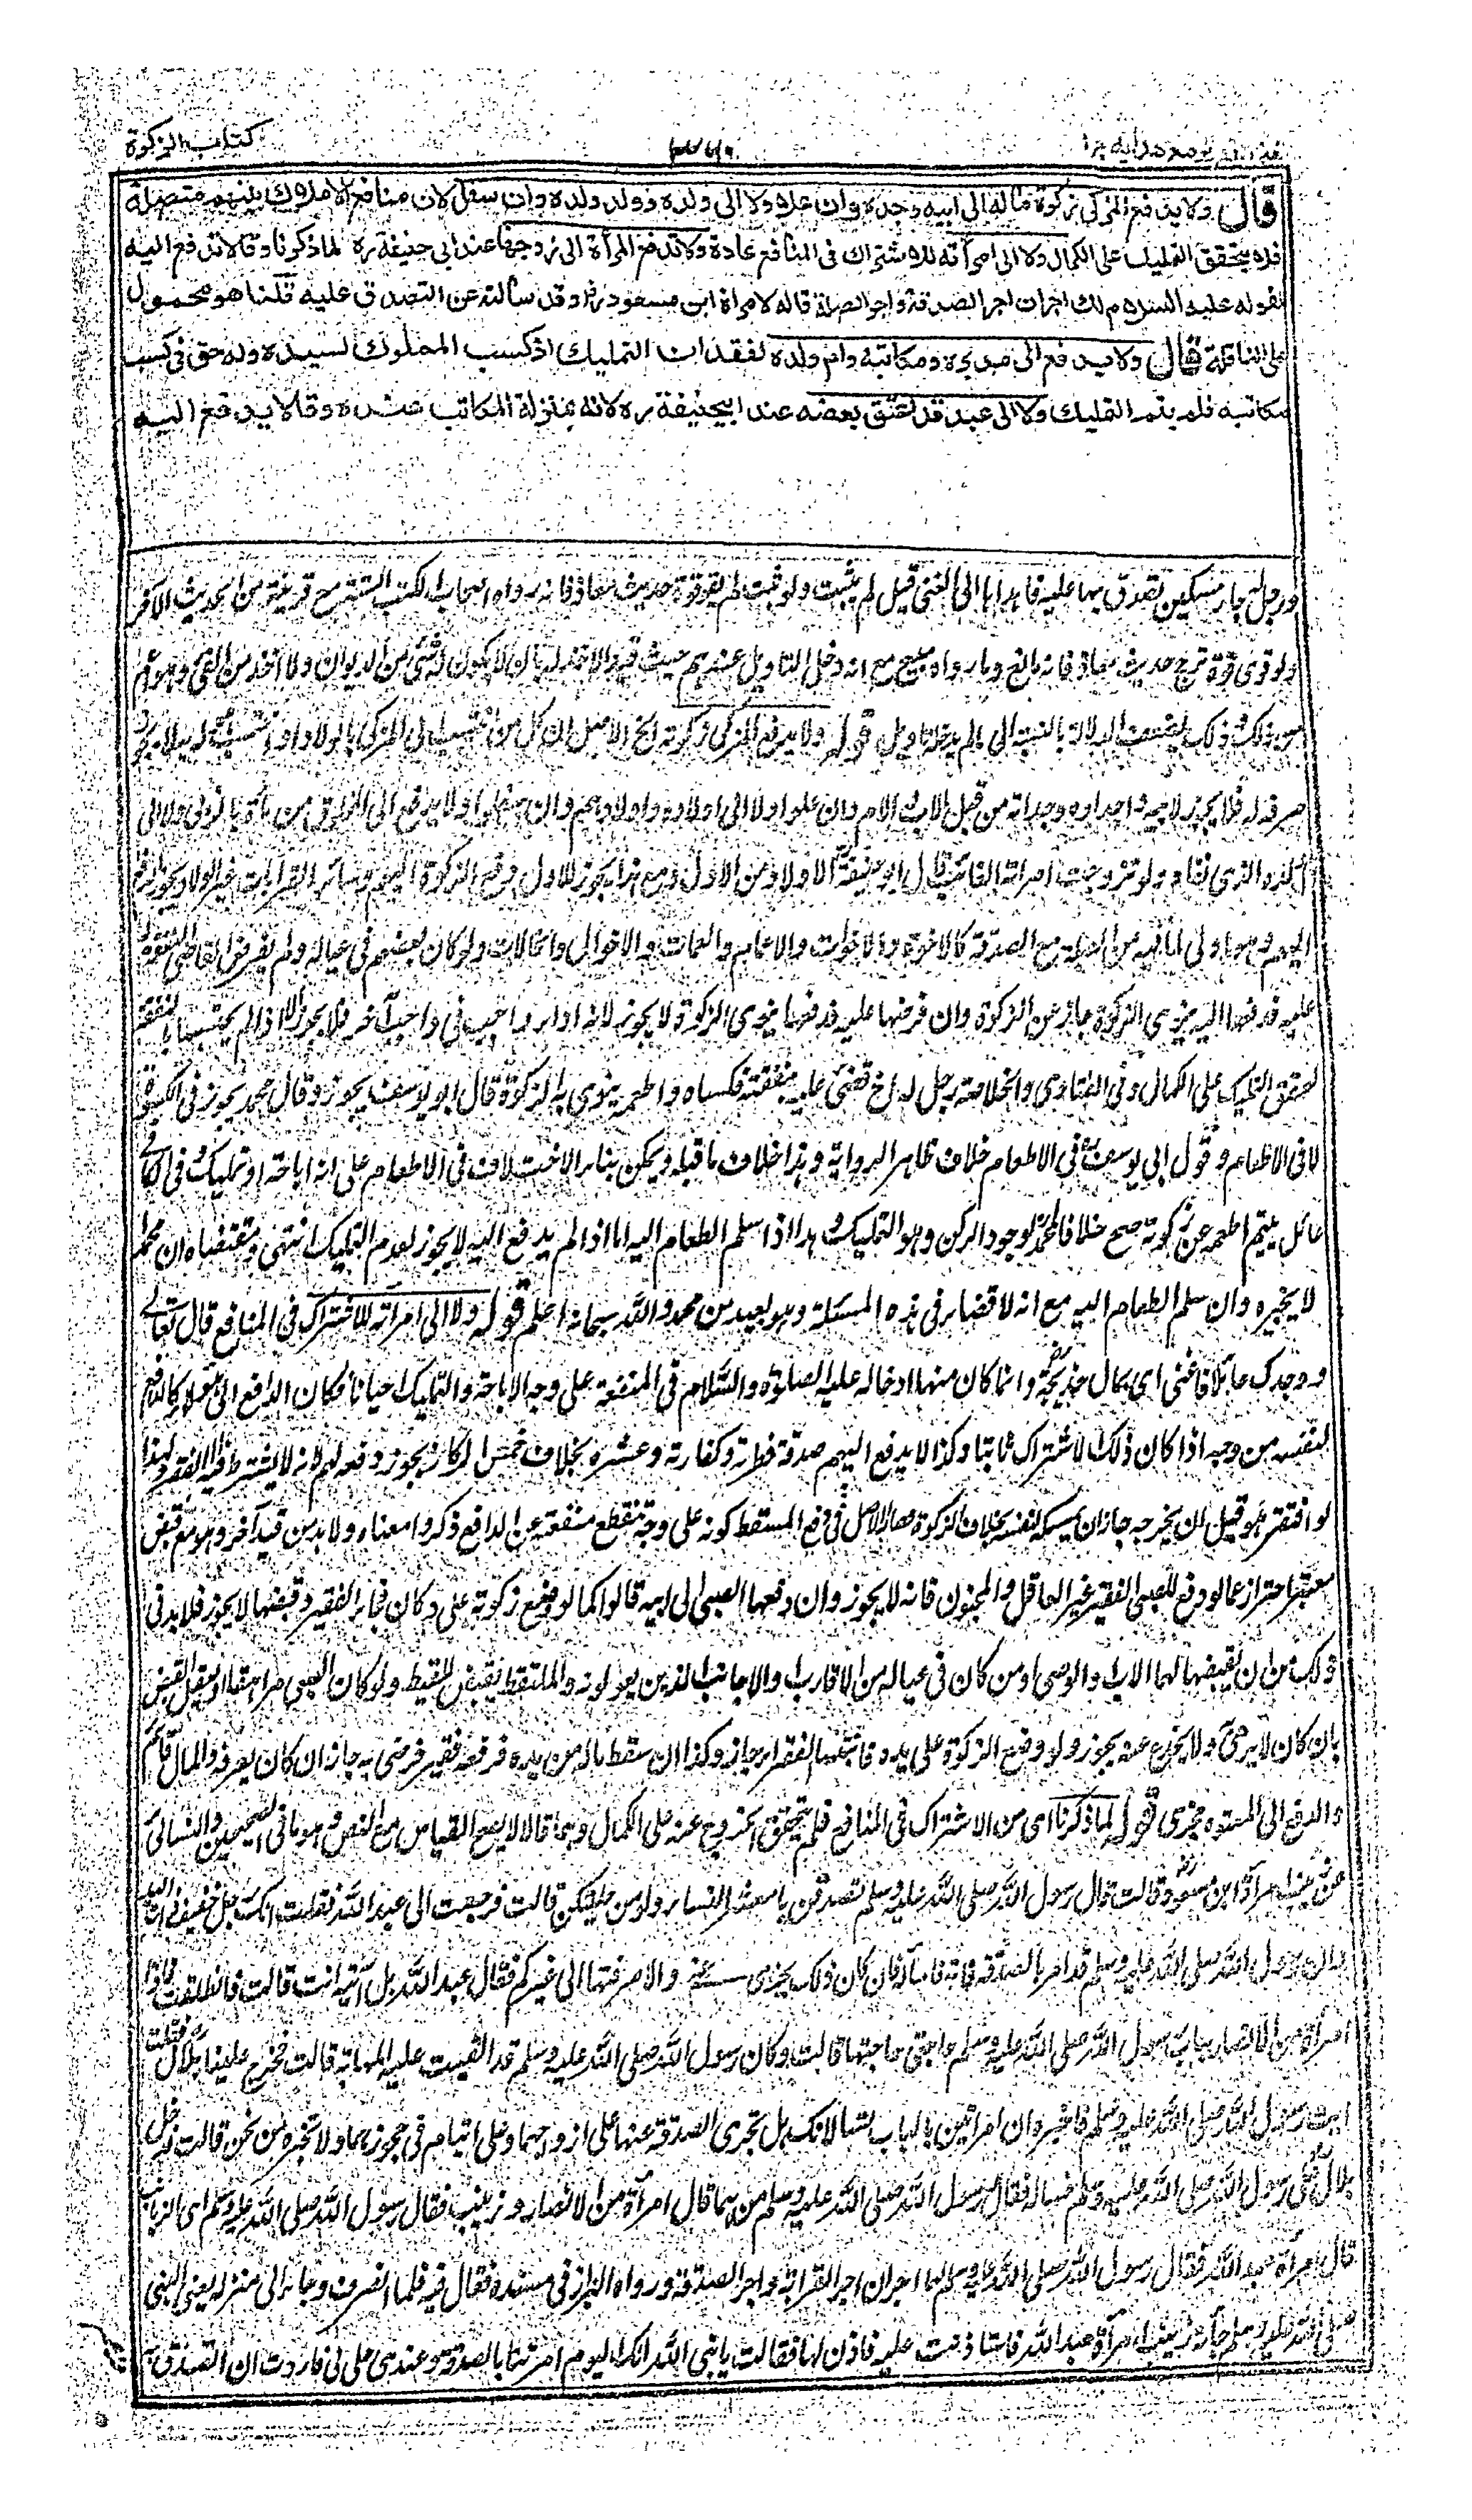 كتاب الزكوة
قال ولا يدفع المزكى زكوة ماله الى ابيه وجده وان علا ولا الى ولده وولد ولده وان سفل لان منافع الاملاك بينهم متصلة
فلا يتحقق التمليك على الكمال ولا الى امرأته للاشتراك فى المنافع عادة ولا تدفع المرأة الى زوجها عند ابي حنيفة ره لما ذكرنا وقالا تدفع اليه
لقوله عليه السلام لك اجران اجر الصدقة واجر الصلة قاله لامرأة ابن مسعود رض وقد سألته عن التصدق عليه قلنا هو محمول
على النافلة قال ولا يدفع الى مدبره ومكاتبه وام ولده لفقدان التمليك اذ كسب المملوك لسيده وله حق فى كسب
مكاتبه فلم يتم التمليك ولا الى عبد قد اعتق بعضه عند ابيحنيفة ره لانه بمنزلة المكاتب عنده وقالا يدفع اليه
ورجل له جار مسكين تصدق بها عليه فاهداها الى الغنى قيل لم يثبت ولو ثبت لم يقو قوة حديث معاذ فانه رواه اصحاب الكتب الستة مع قرينة من الحديث الآخر
ولو قوى قوة ترجح حديث معاذ فانه مانع وما رواه مبيح مع انه دخل التاويل عندهم حيث قيد الاخذ له بان لا يكون له شئ من الديوان ولا اخذ من الفئ وهو اعم
من ذلك وذلك يضعف الدلالة بالنسبة الى ما لم يدخله تاويل قوله ولا يدفع المزكى زكوته الخ الاصل ان كل من انتسب الى المزكى بالولاد او انتسب هو له به لا يجوز
صرفها له فلا يجوز لابيه واجداده وجداته من قبل الاب والام وان علوا ولا الى اولاده واولادهم وان سفلوا ولا يدفع الى المخلوق من مائه بالزنى ولا الى
ولده الذى نفاه ولو تزوجت امرأة الغائب قال ابو حنيفة الاولاد من الاول ومع هذا يجوز للاول دفع الزكوة اليهم وسائر القرابات غير الولاد يجوز الدفع
اليهم وهو اولى لما فيه من الصلة مع الصدقة كالاخوة والاخوات والاعمام والعمات والاخوال والخالات ولو كان بعضهم فى عياله ولم يفرض القاضى النفقة له
عليه فدفعها اليه ينوى الزكوة جاز عن الزكوة وان فرضها عليه فدفعها ينوى الزكوة لا يجوز لانه اداء واجب فى واجب آخر فلا يجوز الا اذا لم يحتسبها بالنفقة
لتحقق التمليك على الكمال وفى الفتاوى والخلاصة رجل له اخ قضى عليه بنفقته فكساه واطعمه ينوى به الزكوة قال ابو يوسف يجوز وقال محمد يجوز فى الكسوة
لا فى الاطعام وقول ابى يوسف ره فى الاطعام خلاف ظاهر الرواية وهذا خلاف ما قبله ويمكن بناء الاختلاف فى الاطعام على انه اباحة او تمليك وفى الكافى
عائل يتيم اطعمه عن زكوته صح خلافا لمحمد لوجود الركن وهو التمليك وهذا اذا سلم الطعام اليه اما اذا لم يدفع اليه لا يجوز لعدم التمليك انتهى ومقتضاه ان محمدا
لا يجيزه وان سلم الطعام اليه مع انه لا قضاء فى هذه المسئلة وهو بعيد من محمد والله سبحانه اعلم قوله ولا الى امرأته للاشتراك فى المنافع قال تعالى
ووجدك عائلا فاغنى اى بمال خديجة رض وانما كان منها ادخاله عليه الصلوة والسلام فى المنفعة على وجه الاباحة والتمليك احيانا فكان الدافع الى هؤلاء كالدافع
لنفسه من وجه اذا كان ذلك الاشتراك ثابتا وكذا لا يدفع اليهم صدقة فطرته وكفارته وعشره بخلاف خمس الركاز يجوز دفعه لهم لانه لا يشترط فيه الفقر ولهذا
لو افتقر هو قبل ان يخرجه جاز ان يمسكه لنفسه بخلاف الزكوة فصار الاصل فى الدفع المسقط كونه على وجه تنقطع منفعته عن الدافع ذكروا معناه ولا بد من قيد آخر وهو مع قبض
معتبر احترازا عما لو دفع للصبى الفقير غير العاقل والمجنون فانه لا يجوز وان دفعها الصبى الى ابيه قالوا كما لو وضع زكوته على دكان فجاء الفقير وقبضها لا يجوز فلا بد فى
ذلك من ان يقبضها لهما الاب او الوصى او من كان فى عياله من الاقارب او الاجانب الذين يعولونه والملتقط يقبض للقيط ولو كان الصبى مراهقا او يعقل القبض
بان كان لا يرمى به ولا يخدع عنه يجوز ولو وضع الزكوة على يده فانتهبها الفقراء جاز وكذا ان سقط ماله من يده فرفعه فقير فرضى به جاز ان كان يعرفه والمال قائم
والدفع الى المعتوه مجزى قوله لما ذكرنا اى من الاشتراك فى المنافع فلم يتحقق الخروج عنه على الكمال وهما قالا لا يصح القياس مع النص وهو ما فى الصحيحين والنسائى
عن زينب امرأة ابن مسعود رض قالت قال رسول الله صلى الله عليه وسلم تصدقن يا معشر النساء ولو من حليكن قالت فرجعت الى عبد الله فقلت انك رجل خفيف ذات اليد
وان رسول الله صلى الله عليه وسلم قد امر بالصدقة فاته فاسأله فان كان ذلك يجزى عنى والا صرفتها الى غيركم فقال عبد الله بل ائتيه انت قالت فانطلقت فاذا
امرأة من الانصار بباب رسول الله صلى الله عليه وسلم حاجتى حاجتها قالت وكان رسول الله صلى الله عليه وسلم قد القيت عليه المهابة قالت فخرج علينا بلال فقلنا
ايت رسول الله صلى الله عليه وسلم فاخبره ان امرأتين بالباب تسألانك هل تجزى الصدقة عنها على ازواجهما وعلى ايتام فى حجورهما ولا تخبره من نحن قالت فدخل
بلال على رسول الله صلى الله عليه وسلم فسأله فقال رسول الله صلى الله عليه وسلم من هما قال امرأة من الانصار وزينب فقال رسول الله صلى الله عليه وسلم اى الزيانب
قال امرأة عبد الله فقال رسول الله صلى الله عليه وسلم لهما اجران اجر القرابة واجر الصدقة ورواه البزار فى مسنده فقال فيه فلما انصرف وجاء الى منزله يعنى النبى
صلى الله عليه وسلم جاءته زينب امرأة عبد الله فاستاذنت عليه فاذن لها فقالت يا نبى الله انك اليوم امرتنا بالصدقة وعندى حلى لى فاردت ان اتصدق به